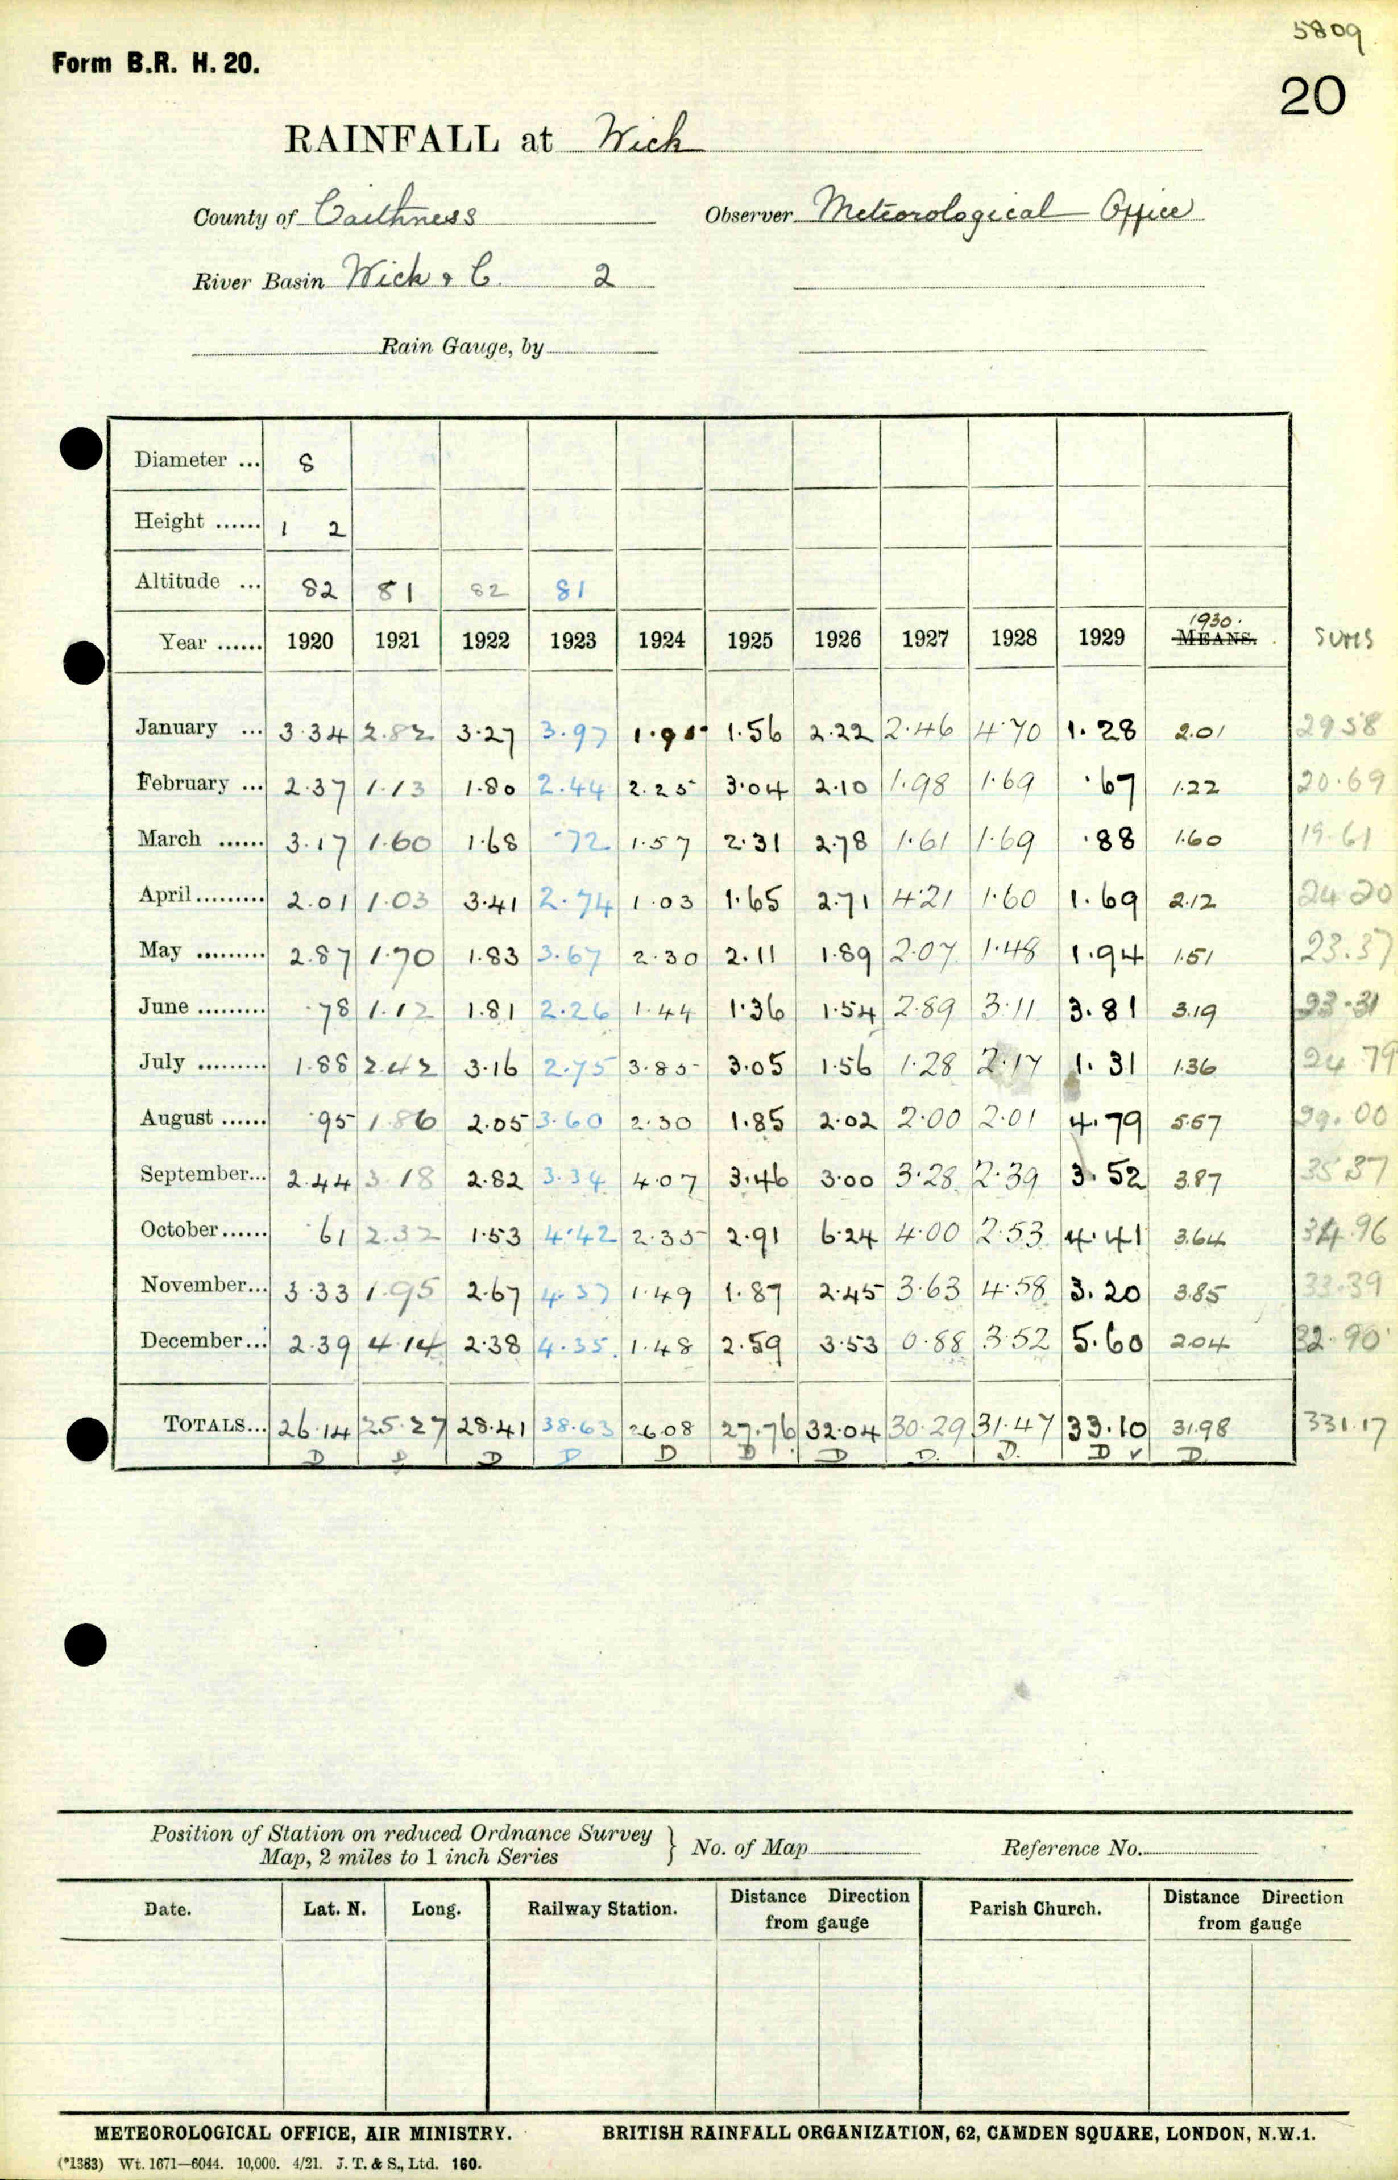 5809
Form B.R. H. 20.
20
RAINFALL at Wick
County of Caithness Observer Meteorological Office
River Basin Wick & C. 2
Rain Gauge, by
Diameter ... 8
Height ...... 1 2
Altitude ... 82 81 82 81
1930.
Year ...... 1920 1921 1922 1923 1924 1925 1926 1927 1928 1929 MEANS. SUMS
January ... 3.34 2.82 3.27 3.97 1.95 1.56 2.22 2.46 4.70 1.28 2.01 29.58
February ... 2.37 1.13 1.80 2.44 2.25 3.04 2.10 1.98 1.69 .67 1.22 20.69
March ...... 3.17 1.60 1.68 .72 1.57 2.31 2.78 1.61 1.69 .88 1.60 19.61
April ......... 2.01 1.03 3.41 2.74 1.03 1.65 2.71 4.21 1.60 1.69 2.12 24.20
May ......... 2.87 1.70 1.83 3.67 2.30 2.11 1.89 2.07 1.48 1.94 1.51 23.37
June ......... .78 1.12 1.81 2.26 1.44 1.36 1.54 2.89 3.11 3.81 3.19 23.31
July ......... 1.88 2.42 3.16 2.75 3.85 3.05 1.56 1.28 2.17 1.31 1.36 24.79
August ...... .95 1.86 2.05 3.60 2.30 1.85 2.02 2.00 2.01 4.79 5.57 29.00
September... 2.44 3.18 2.82 3.34 4.07 3.46 3.00 3.28 2.39 3.52 3.87 35.37
October ...... .61 2.32 1.53 4.42 2.35 2.91 6.24 4.00 2.53 4.41 3.64 34.96
November... 3.33 1.95 2.67 4.37 1.49 1.87 2.45 3.63 4.58 3.20 3.85 33.39
December... 2.39 4.14 2.38 4.35 1.48 2.59 3.53 0.88 3.52 5.60 2.04 32.90
TOTALS... 26.14 25.27 28.41 38.63 26.08 27.76 32.04 30.29 31.47 33.10 31.98 331.17
D D D D D D D D. D. D ✓ D.
Position of Station on reduced Ordnance Survey
Map, 2 miles to 1 inch Series } No. of Map Reference No.
Date. Lat. N. Long. Railway Station. Distance Direction from gauge Parish Church. Distance Direction from gauge
METEOROLOGICAL OFFICE, AIR MINISTRY. BRITISH RAINFALL ORGANIZATION, 62, CAMDEN SQUARE, LONDON, N.W.1.
(*1383) Wt. 1671—6044. 10,000. 4/21. J. T. & S., Ltd. 160.